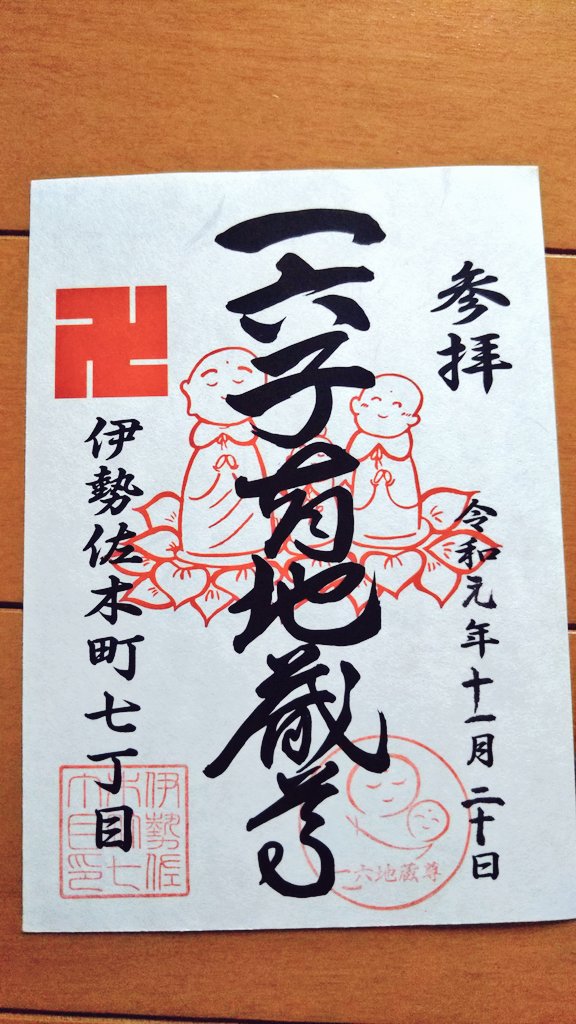 参拝
令和元年十一月二十日
一六子育地蔵尊
卍
伊勢佐木町七丁目
一六地蔵尊
伊勢佐
木町七
丁目印